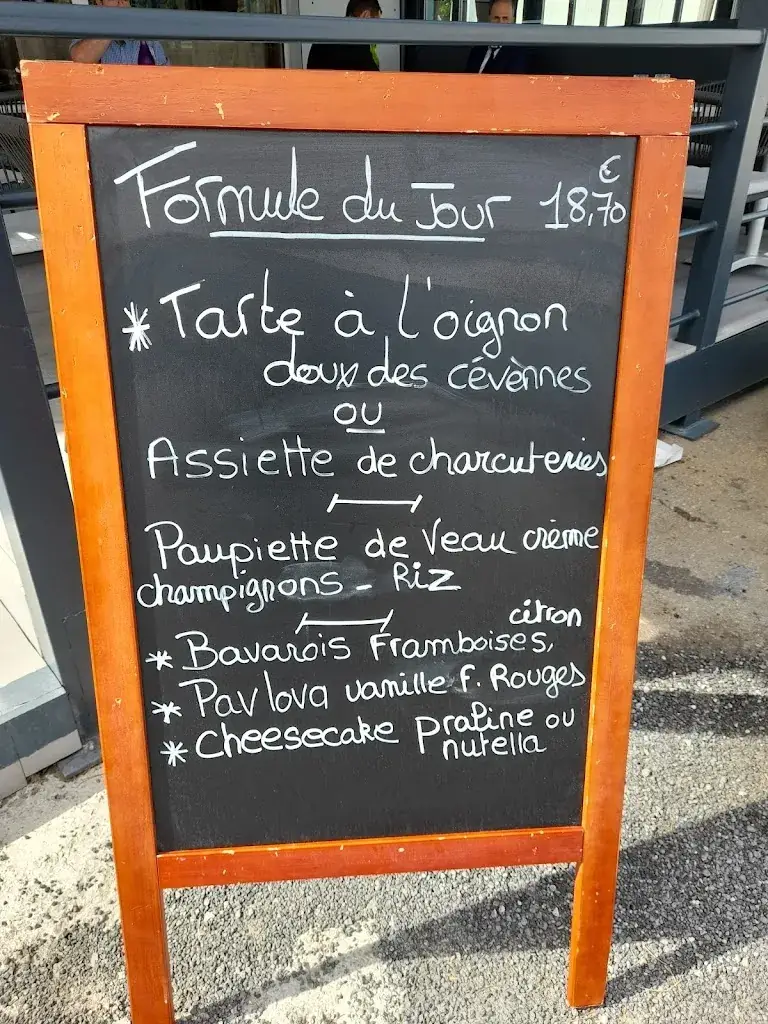 Formule du Jour 18,70 €
* Tarte à l'oignon
doux des cévènnes
ou
Assiette de charcuteries
Paupiette de Veau crème
champignons - Riz
* Bavarois Framboises, citron
* Pavlova vanille F. Rouges
* Cheesecake praline ou
nutella